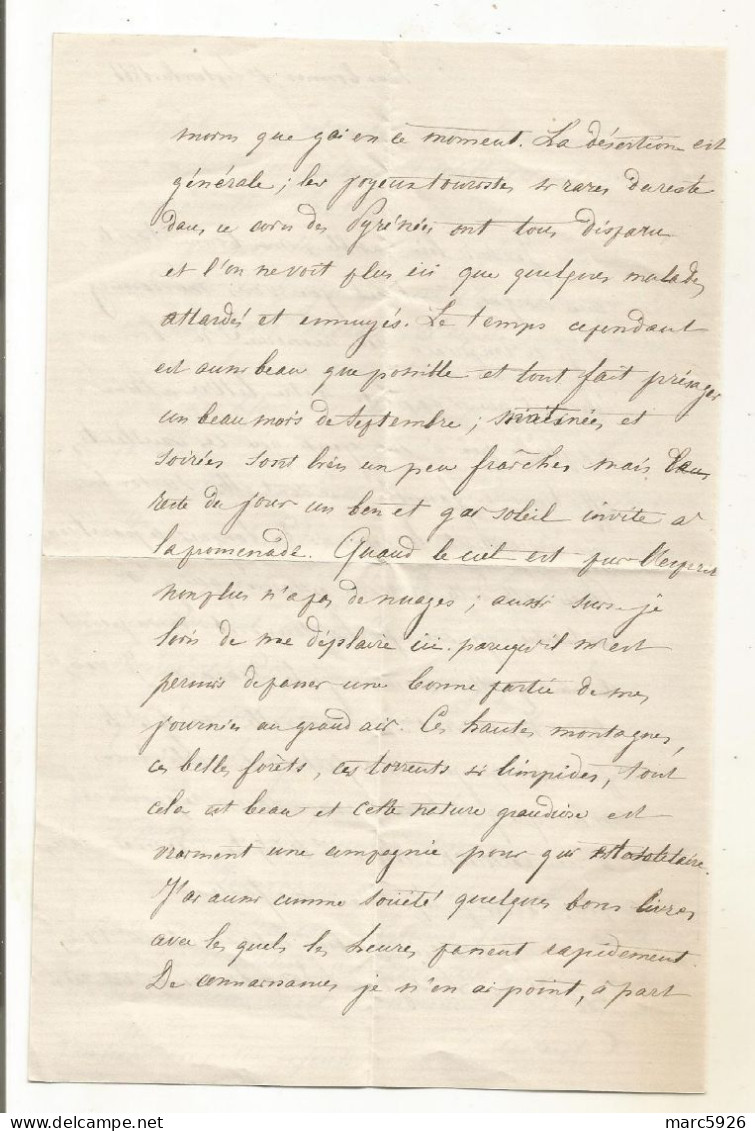 moins que gai en ce moment. La désertion est
générale ; les joyeux touristes si rares du reste
dans ce coin des Pyrénées ont tous disparu
et l'on ne voit plus ici que quelques malades
attardés et ennuyés. Le temps cependant
est aussi beau que possible et tout fait présager
un beau mois de Septembre ; matinées et
soirées sont bien un peu fraîches mais
reste du jour un bon et gai soleil invite à
la promenade. Quand le ciel est pur l'esprit
non plus n'a pas de nuages ; aussi suis-je
loin de me déplaire ici parcequ'il m'est
permis de passer une bonne partie de mes
journées au grand air. Ces hautes montagnes,
ces belles forêts, ces torrents si limpides, tout
cela est beau et cette nature grandiose est
vraiment une compagnie pour qui est solitaire.
J'ai aussi comme société quelques bons livres
avec les quels les heures passent rapidement.
De connaissances je n'en ai point, à part
marc5926